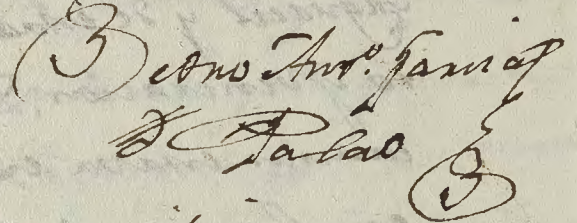 Pedro Antº. Garcia
D Palao